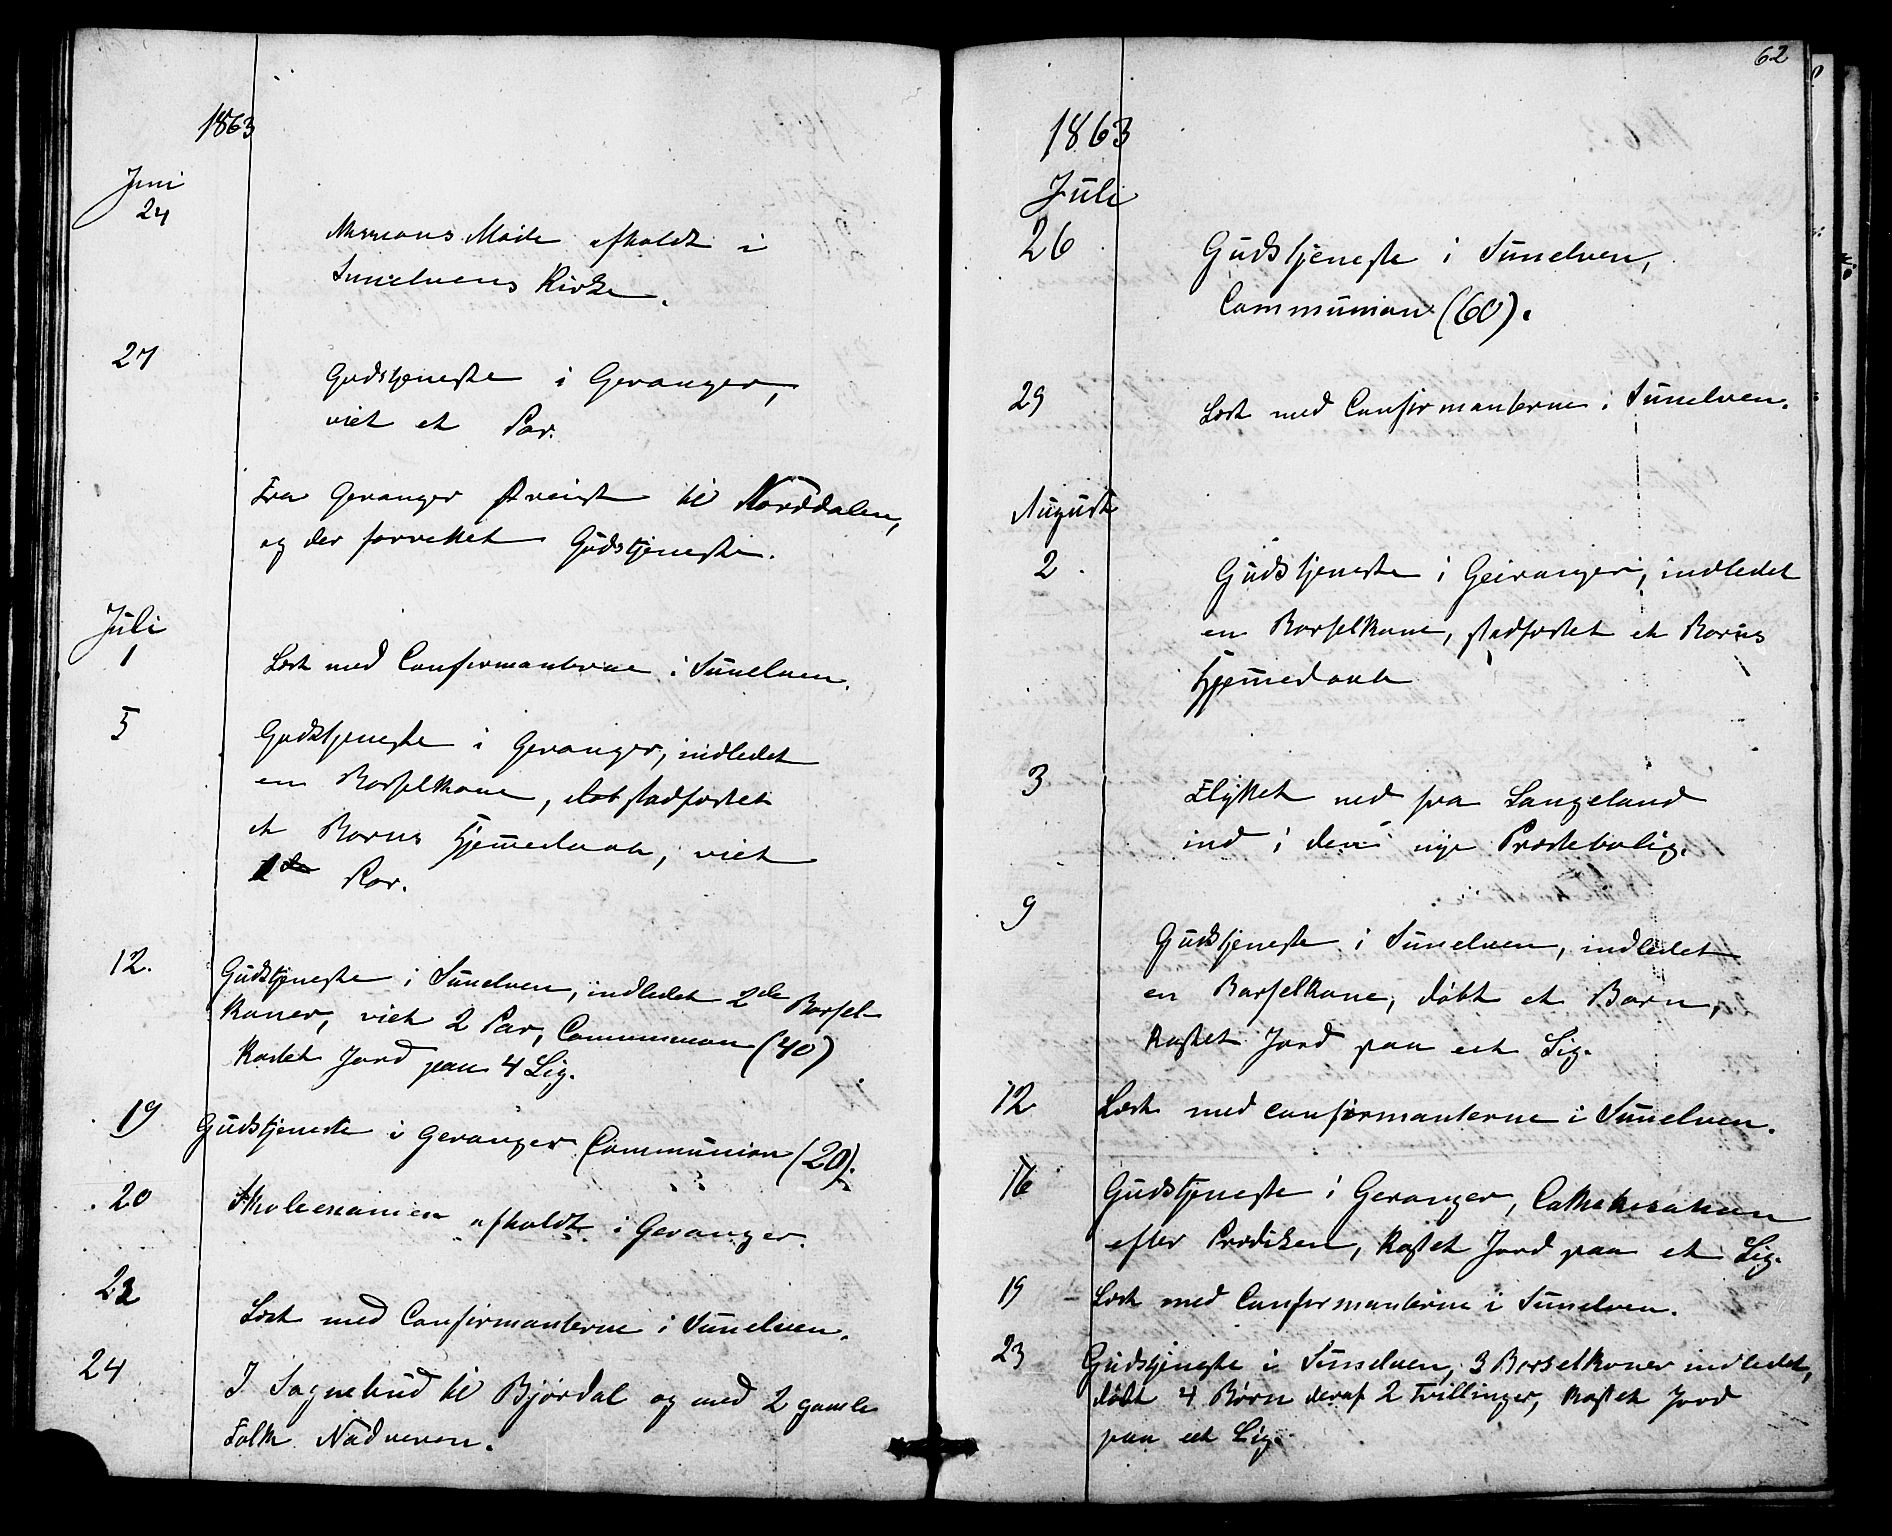 1863
Juni
24
Missions Møde afholdt i
Sunelvens Kirke.
27
Gudstjeneste i Geranger,
viet et Par.
Fra Geranger reist til Norddalen,
og der forrettet Gudstjeneste.
Juli
1
Læst med Confirmanterne i Sunelven.
5
Gudstjeneste i Geranger, indledet
en Barselkone, stadfæstet
et Barns Hjemmedaab, viet
Par.
12.
Gudstjeneste i Sunelven, indledet 2de Barsel-
koner, viet 2 Par, Communion (40)
kastet Jord paa 4 Lig.
19
Gudstjeneste i Geranger Communion (20).
20
Skoleexamen afholdt i Geranger.
22
Læst med Confirmanterne i Sunelven.
24
I Sognebud til Bjørdal og med 2 gamle
Folk Nadveren.
62
1863
Juli
26
Gudstjeneste i Sunelven,
Communion (60).
29
Læst med Confirmanterne i Sunelven.
August
2
Gudstjeneste i Geiranger, indledet
en Barselkone, stadfæstet et Barns
Hjemmedaab
3
Flyttet ned fra Langeland
ind i den nye Præstebolig.
9
Gudstjeneste i Sunelven, indledet
en Barselkone, døbt et Barn,
kastet Jord paa eet Lig.
12
Læst med confirmanterne i Sunelven.
16
Gudstjeneste i Geranger, Cathekisation
efter Prædiken, kastet Jord paa et Lig.
19
Læst med Confirmanterne i Sunelven.
23
Gudstjeneste i Sunelven, 3 Barselkoner indledet,
døbt 4 Børn deraf 2 Tvillinger, kastet Jord
paa eet Lig.